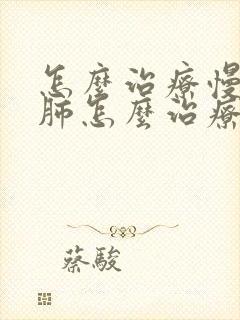 怎麼治療慢
肺怎麼治療
蔡駿